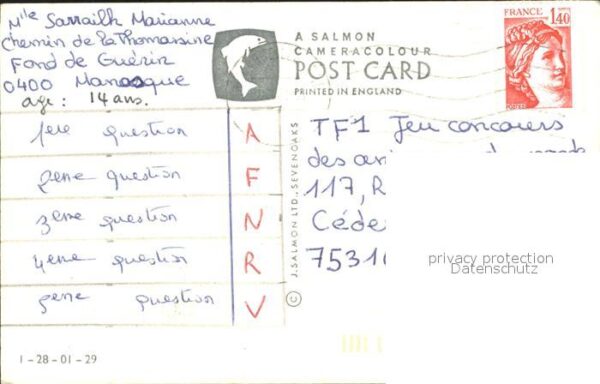 Mlle Sarrailh Marianne
Chemin de la Thomassine
Fond de Guérin
0400 Manosque
age : 14 ans.
1ere question A
2eme question F
3eme question N
4eme question R
5eme question V
A SALMON
CAMERACOLOUR
POST CARD
PRINTED IN ENGLAND
FRANCE 1,40
POSTES
© J. SALMON LTD., SEVENOAKS
TF1 Jeu concours
des
117, R
Céde
7531
privacy protection
Datenschutz
1-28-01-29